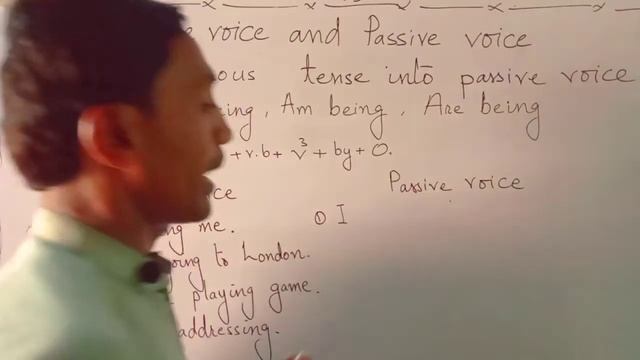 voice and Passive voice
tense into passive voice
Am being, Are being
+ v.b + v³ + by + O.
Passive voice
me. ① I
to London.
playing game.
addressing.